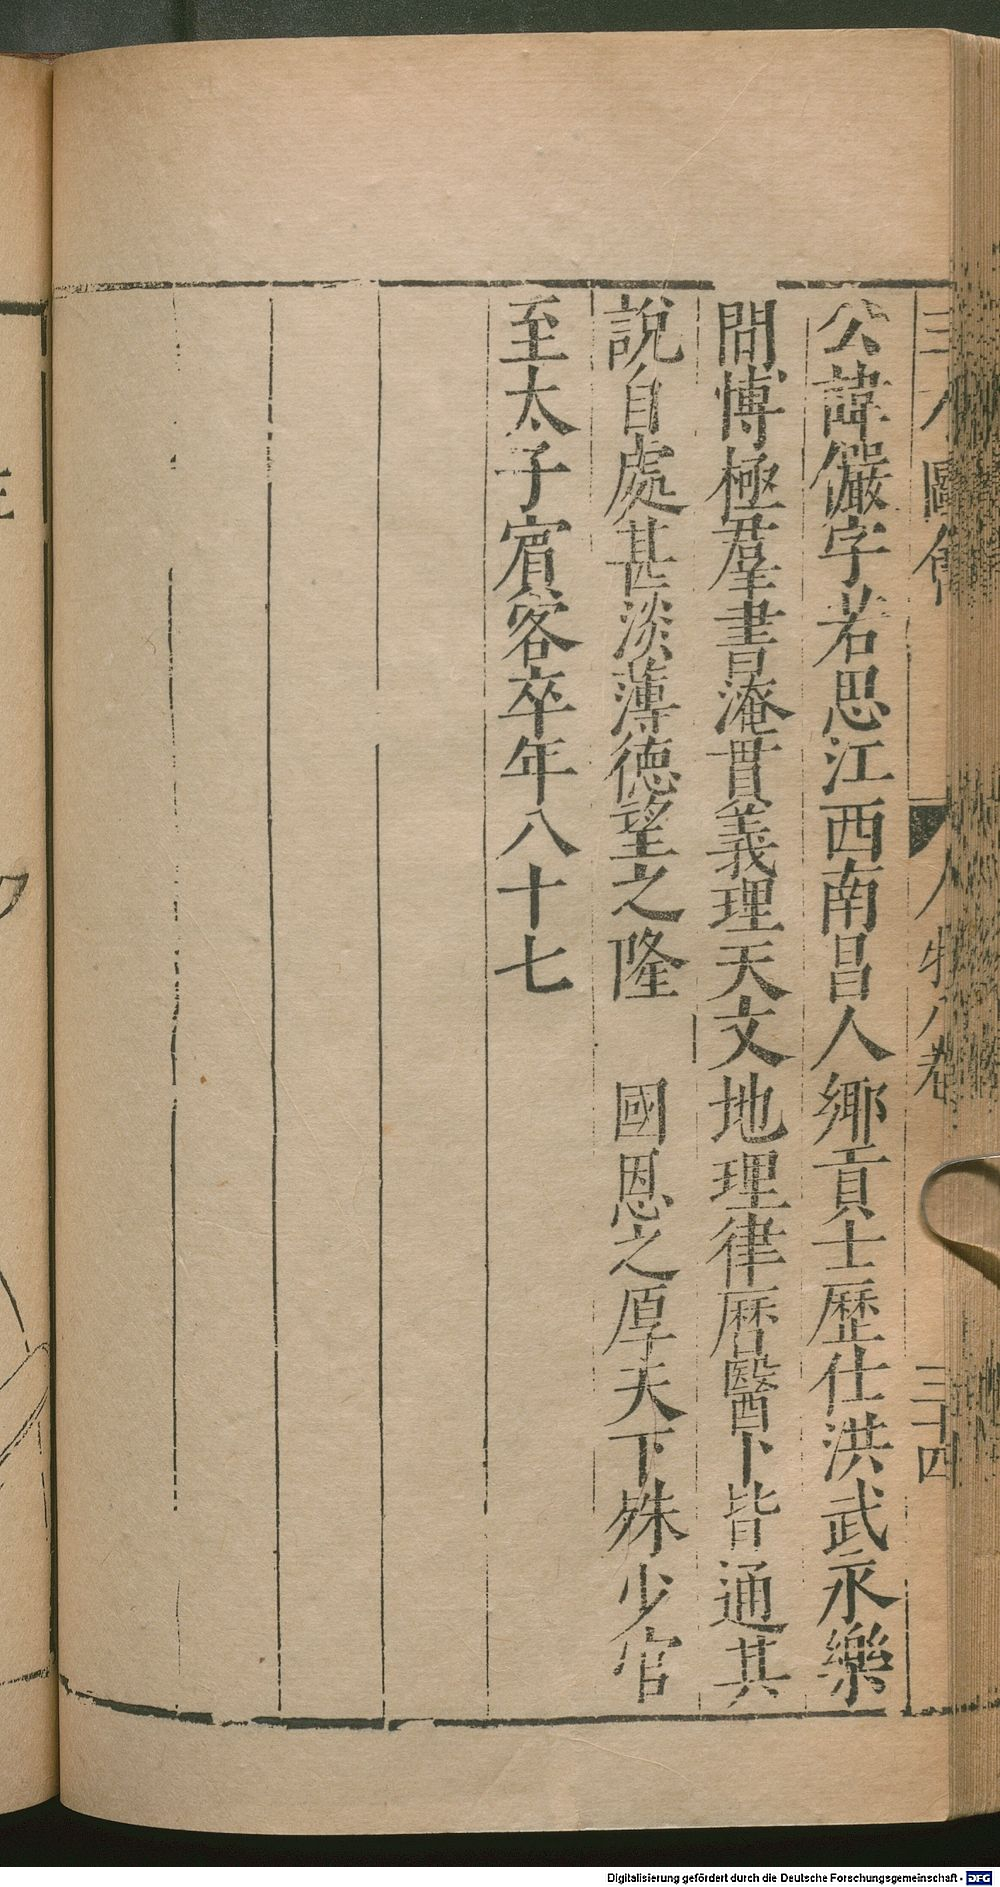 公諱儼字若思江西南昌人鄉貢士歷仕洪武永樂
間博極羣書淹貫義理天文地理律曆醫卜皆通其
說自處甚淡薄德望之隆　國恩之厚天下殊少官
至太子賓客卒年八十七
人物八卷
三十四
Digitalisierung gefördert durch die Deutsche Forschungsgemeinschaft - DFG